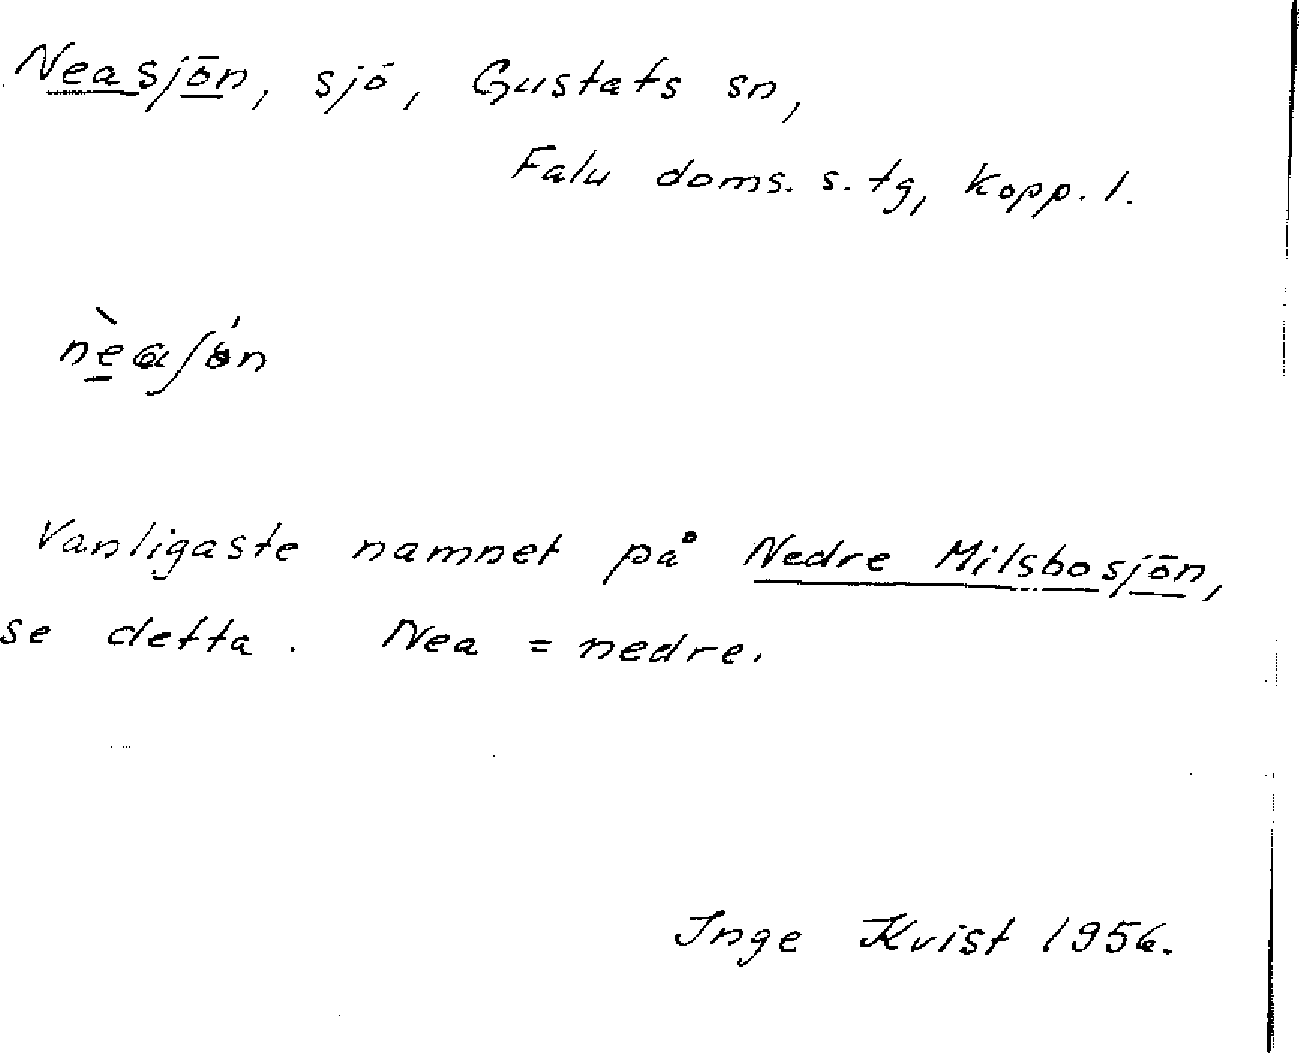 Neasjön, sjö, Gustafs sn,
Falu doms. s. tg, Kopp. l.
nèaʃón
Vanligaste namnet på Nedre Milsbosjön,
se detta. Nea = nedre.
Inge Kvist 1956.